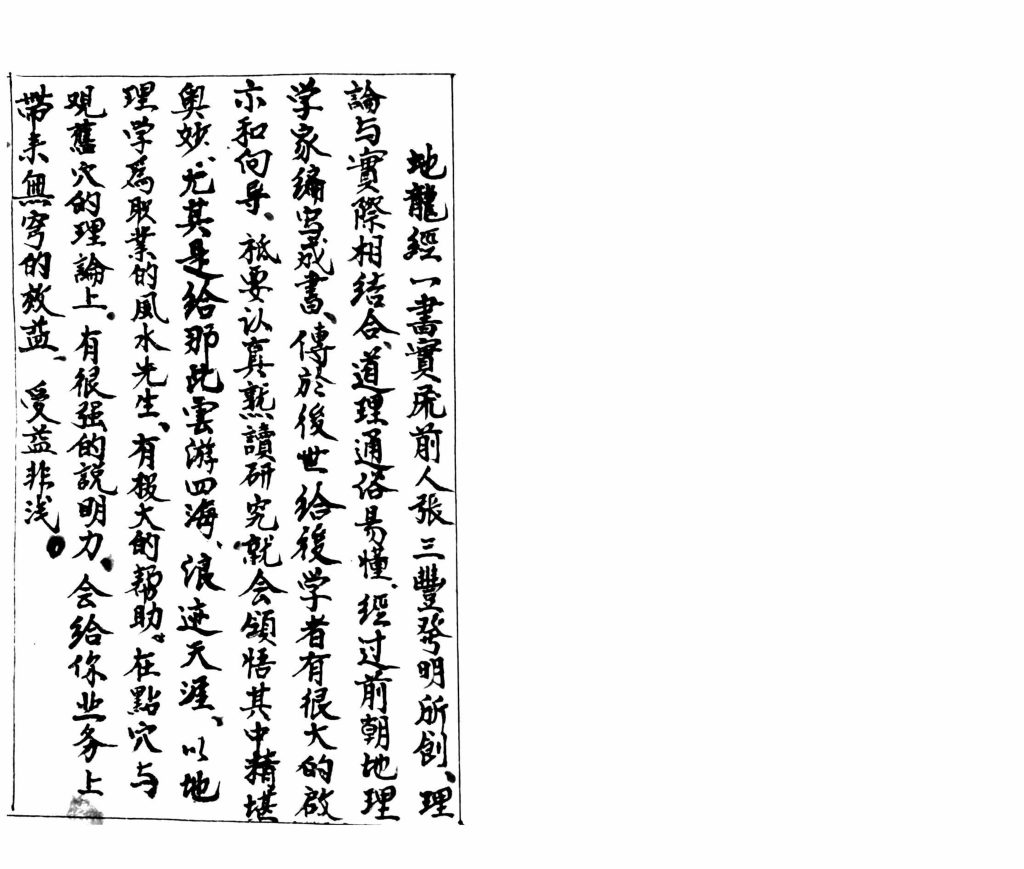 地龍經一書實屬前人張三豐發明所創、理
論与實際相結合、道理通俗易懂、經过前朝地理
学家编写成書、傳於後世给後学者有很大的啟
示和向导、衹要认真熟讀研究就会領悟其中精堪
奥妙、尤其是给那此雲游四海、浪迹天涯、以地
理学為职業的風水先生、有极大的帮助。在點穴与
观舊穴的理論上、有很强的説明力、会给你业务上
带来無穷的效益、受益非浅。